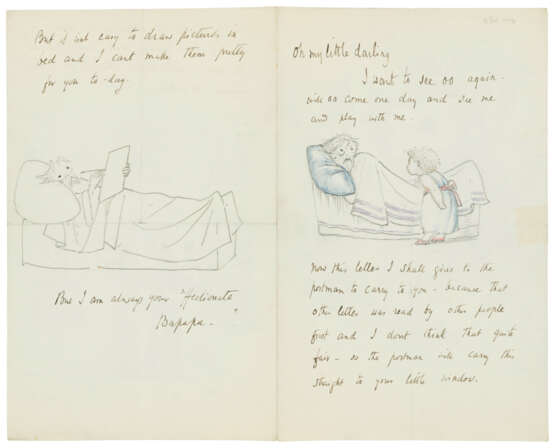 But is not easy to draw pictures in
bed and I cant make them pretty
for you to-day.
But I am always your 'ffectionate
Bapapa -
Oh my little darling
I want to see oo again -
will oo come one day and see me
and play with me -
Now this letter I shall give to the
postman to carry to you - because that
other letter was read by other people
first and I dont think that quite
fair - so the postman will carry this
straight to your little window.